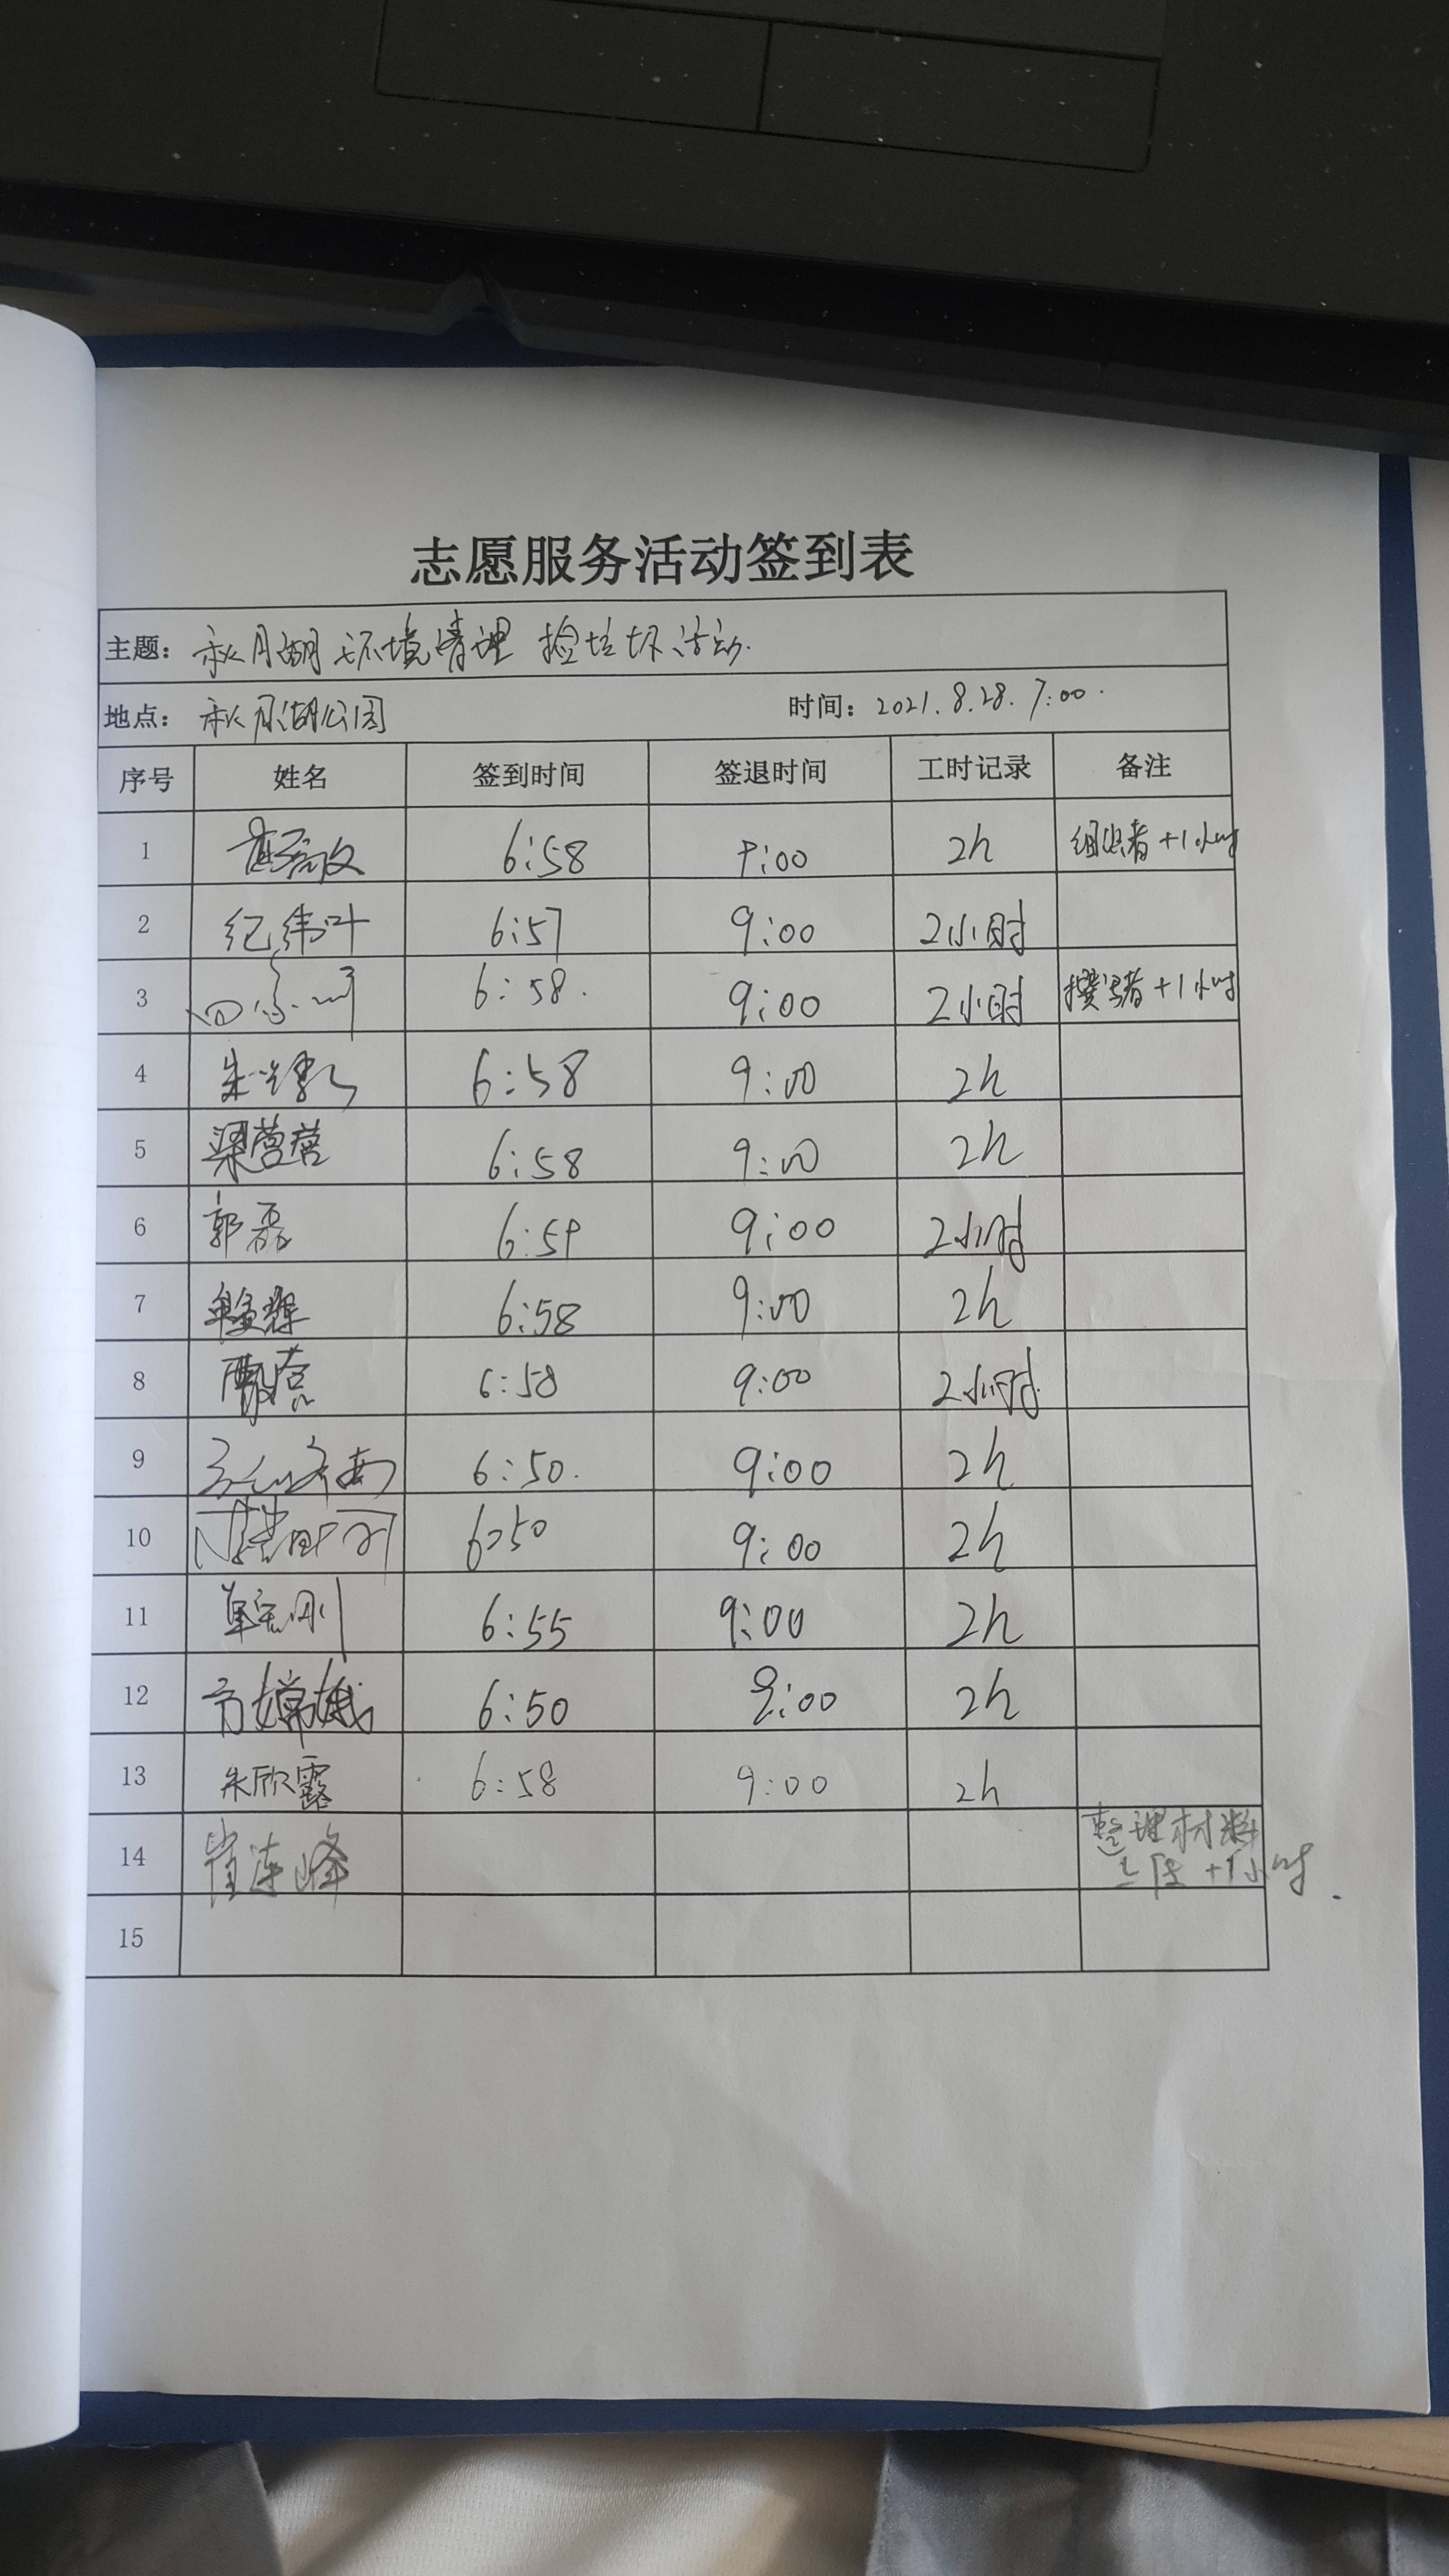 志愿服务活动签到表
主题: 秋月湖环境清理 捡垃圾活动.
地点: 秋月湖公园 时间: 2021.8.28. 7:00.
序号 姓名 签到时间 签退时间 工时记录 备注
1 6:58 9:00 2h 组织者+1小时
2 纪伟叶 6:57 9:00 2小时
3 6:58. 9:00 2小时 撰写者+1小时
4 6:58 9:00 2h
5 梁营营 6:58 9:00 2h
6 郭磊 6:59 9:00 2小时
7 6:58 9:00 2h
8 6:58 9:00 2小时
9 6:50. 9:00 2h
10 6:50 9:00 2h
11 6:55 9:00 2h
12 方嫦娥 6:50 9:00 2h
13 朱欣露 6:58 9:00 2h
14 崔连峰 整理材料
上传+1小时.
15